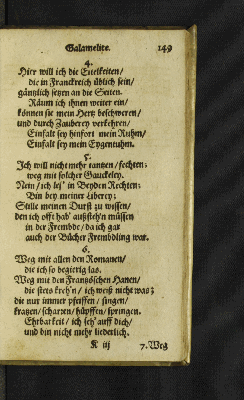 Galamelite. 149
4.
Hier will ich die Eitelkeiten/
die in Franckreich üblich sein/
gäntzlich setzen an die Seiten.
Räum ich ihnen weiter ein/
können sie mein Hertz beschweren/
und durch Zauberey verkehren/
Einfalt sey hinfort mein Ruhm/
Einfalt sey mein Eygenthum.
5.
Ich will nicht mehr tantzen/fechten;
weg mit solcher Gauckeley.
Nein/ich les' in Beyden Rechten;
Bin bey meiner Liberey;
Stille meinen Durst zu wissen/
den ich offt hab' außstehn müssen
in der Frembde/da ich gar
auch der Bücher Frembdling war.
6.
Weg mit allen den Romanen/
die ich so begierig las.
Weg mit den Frantzöschen Hanen/
die stets kreh'n/ich weiß nicht was;
die nur immer pfeiffen/singen/
kratzen/scharren/hüpffen/springen.
Ehrbarkeit/ich seh' auff dich/
und bin nicht mehr liederlich.
K iij 7. Weg